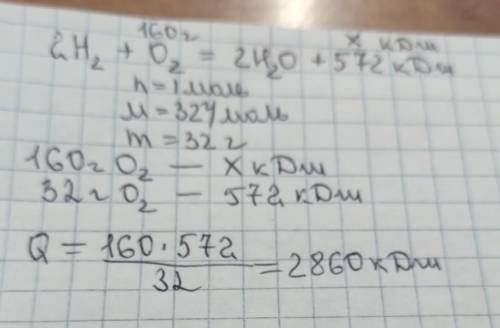 160г x кДж
2H₂ + O₂ = 2H₂O + 572 кДж
n = 1 моль
M = 32 г/моль
m = 32 г
160г O₂ — x кДж
32г O₂ — 572 кДж
Q = 160·572 / 32 = 2860 кДж